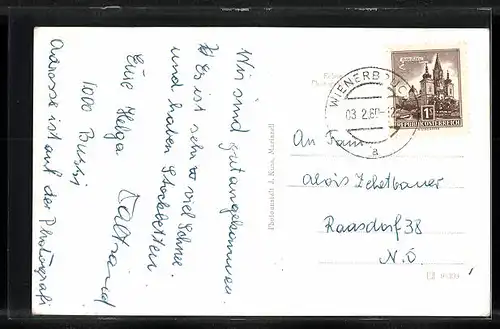 Wir sind gut angekommen.
Es ist sehr viel Schnee
und haben Stockbetten.
Eure Helga
Waltraud
1000 Bussi
Adresse ist auf der Photografi
Photoanstalt J. Kuss, Mariazell
WIENERBRUCK
03.2.60-12
a
MARIAZELL
1S
REPUBLIK ÖSTERREICH
An Fam.
Alois Zehetbauer
Raasdorf 38
N.Ö.